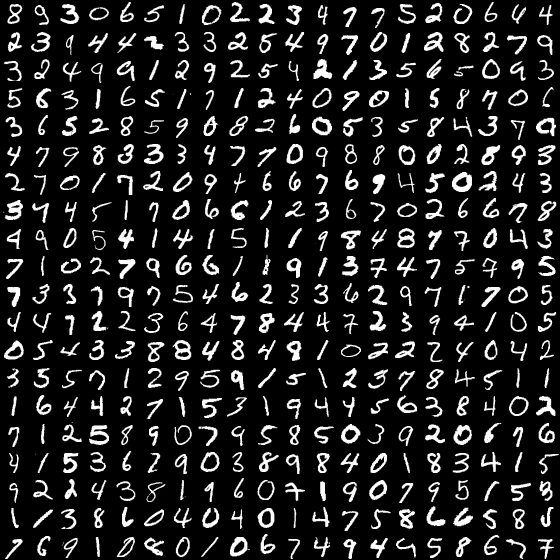 8 9 3 0 6 5 1 0 2 2 3 4 7 7 5 2 0 6 4 4
2 3 9 4 4 2 3 3 2 5 4 9 7 0 1 2 8 2 7 9
3 2 4 9 9 1 2 9 2 5 4 2 1 3 5 6 5 0 9 3
5 6 3 1 6 5 1 7 1 2 4 0 9 0 1 5 8 7 0 6
3 6 5 2 8 5 9 0 8 2 6 0 5 3 5 8 4 3 7 0
4 7 9 8 3 3 3 4 7 7 0 9 8 8 0 0 2 8 9 3
2 7 0 1 7 2 0 9 4 6 6 7 6 9 4 5 0 2 4 3
5 7 4 5 1 7 0 6 6 1 2 3 6 7 0 2 6 6 7 8
4 9 0 5 4 1 4 1 5 1 1 9 8 4 8 7 7 0 4 3
7 1 0 2 7 9 6 6 1 1 9 1 3 7 4 7 5 7 9 5
7 3 3 7 9 7 5 4 6 2 3 3 6 2 9 7 1 7 0 5
4 4 7 2 2 3 6 4 7 8 4 4 7 2 3 9 4 1 0 5
0 5 4 3 3 8 8 4 8 4 8 1 0 2 2 2 4 0 4 2
3 5 5 7 1 2 9 5 9 1 5 1 2 3 7 8 4 5 1 1
1 6 4 4 2 7 1 5 3 1 9 4 4 5 6 3 8 4 0 2
7 1 2 5 8 9 0 7 9 5 8 5 0 3 9 2 0 6 7 6
4 1 5 3 6 7 9 0 3 8 9 8 4 0 1 8 3 4 1 5
9 2 2 4 3 8 1 9 6 0 7 1 9 0 7 9 5 1 5 5
1 1 3 8 6 0 4 0 4 0 1 4 7 5 8 6 6 5 8 6
7 6 9 1 0 8 0 1 0 6 7 4 9 4 4 5 8 6 7 7